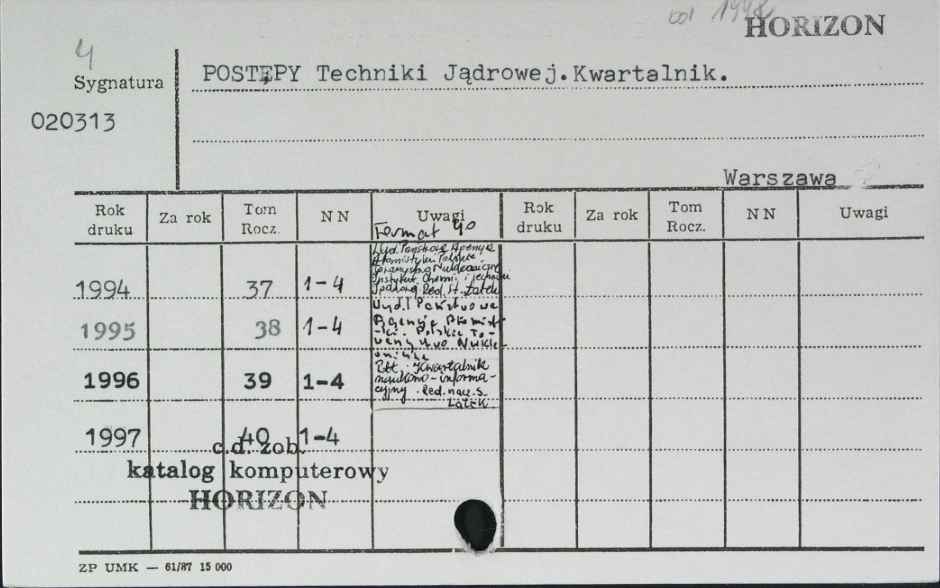 od 1998
HORIZON
4
Sygnatura
POSTĘPY Techniki Jądrowej.Kwartalnik.
020313
Warszawa
Rok druku Za rok Tom Rocz. NN Uwagi Rok druku Za rok Tom Rocz. NN Uwagi
Format 40
Wyd. Państwowa Agencja
Atomistyki Polskie
Instytut Chemii i Techniki
Jądrowej Red. St. Latek
1994 37 1-4
Wyd. Państwowa
Agencja Atomist-
-ki. Polskie To-
1995 38 1-4
warzystwo Nukle-
oniczne
Kwartalnik
1996 39 1-4
naukowo-informa-
cyjny. Red. nacz. S.
Latek
1997 40 1-4
c.d. zob.
katalog komputerowy
HORIZON
ZP UMK — 61/87 15 000